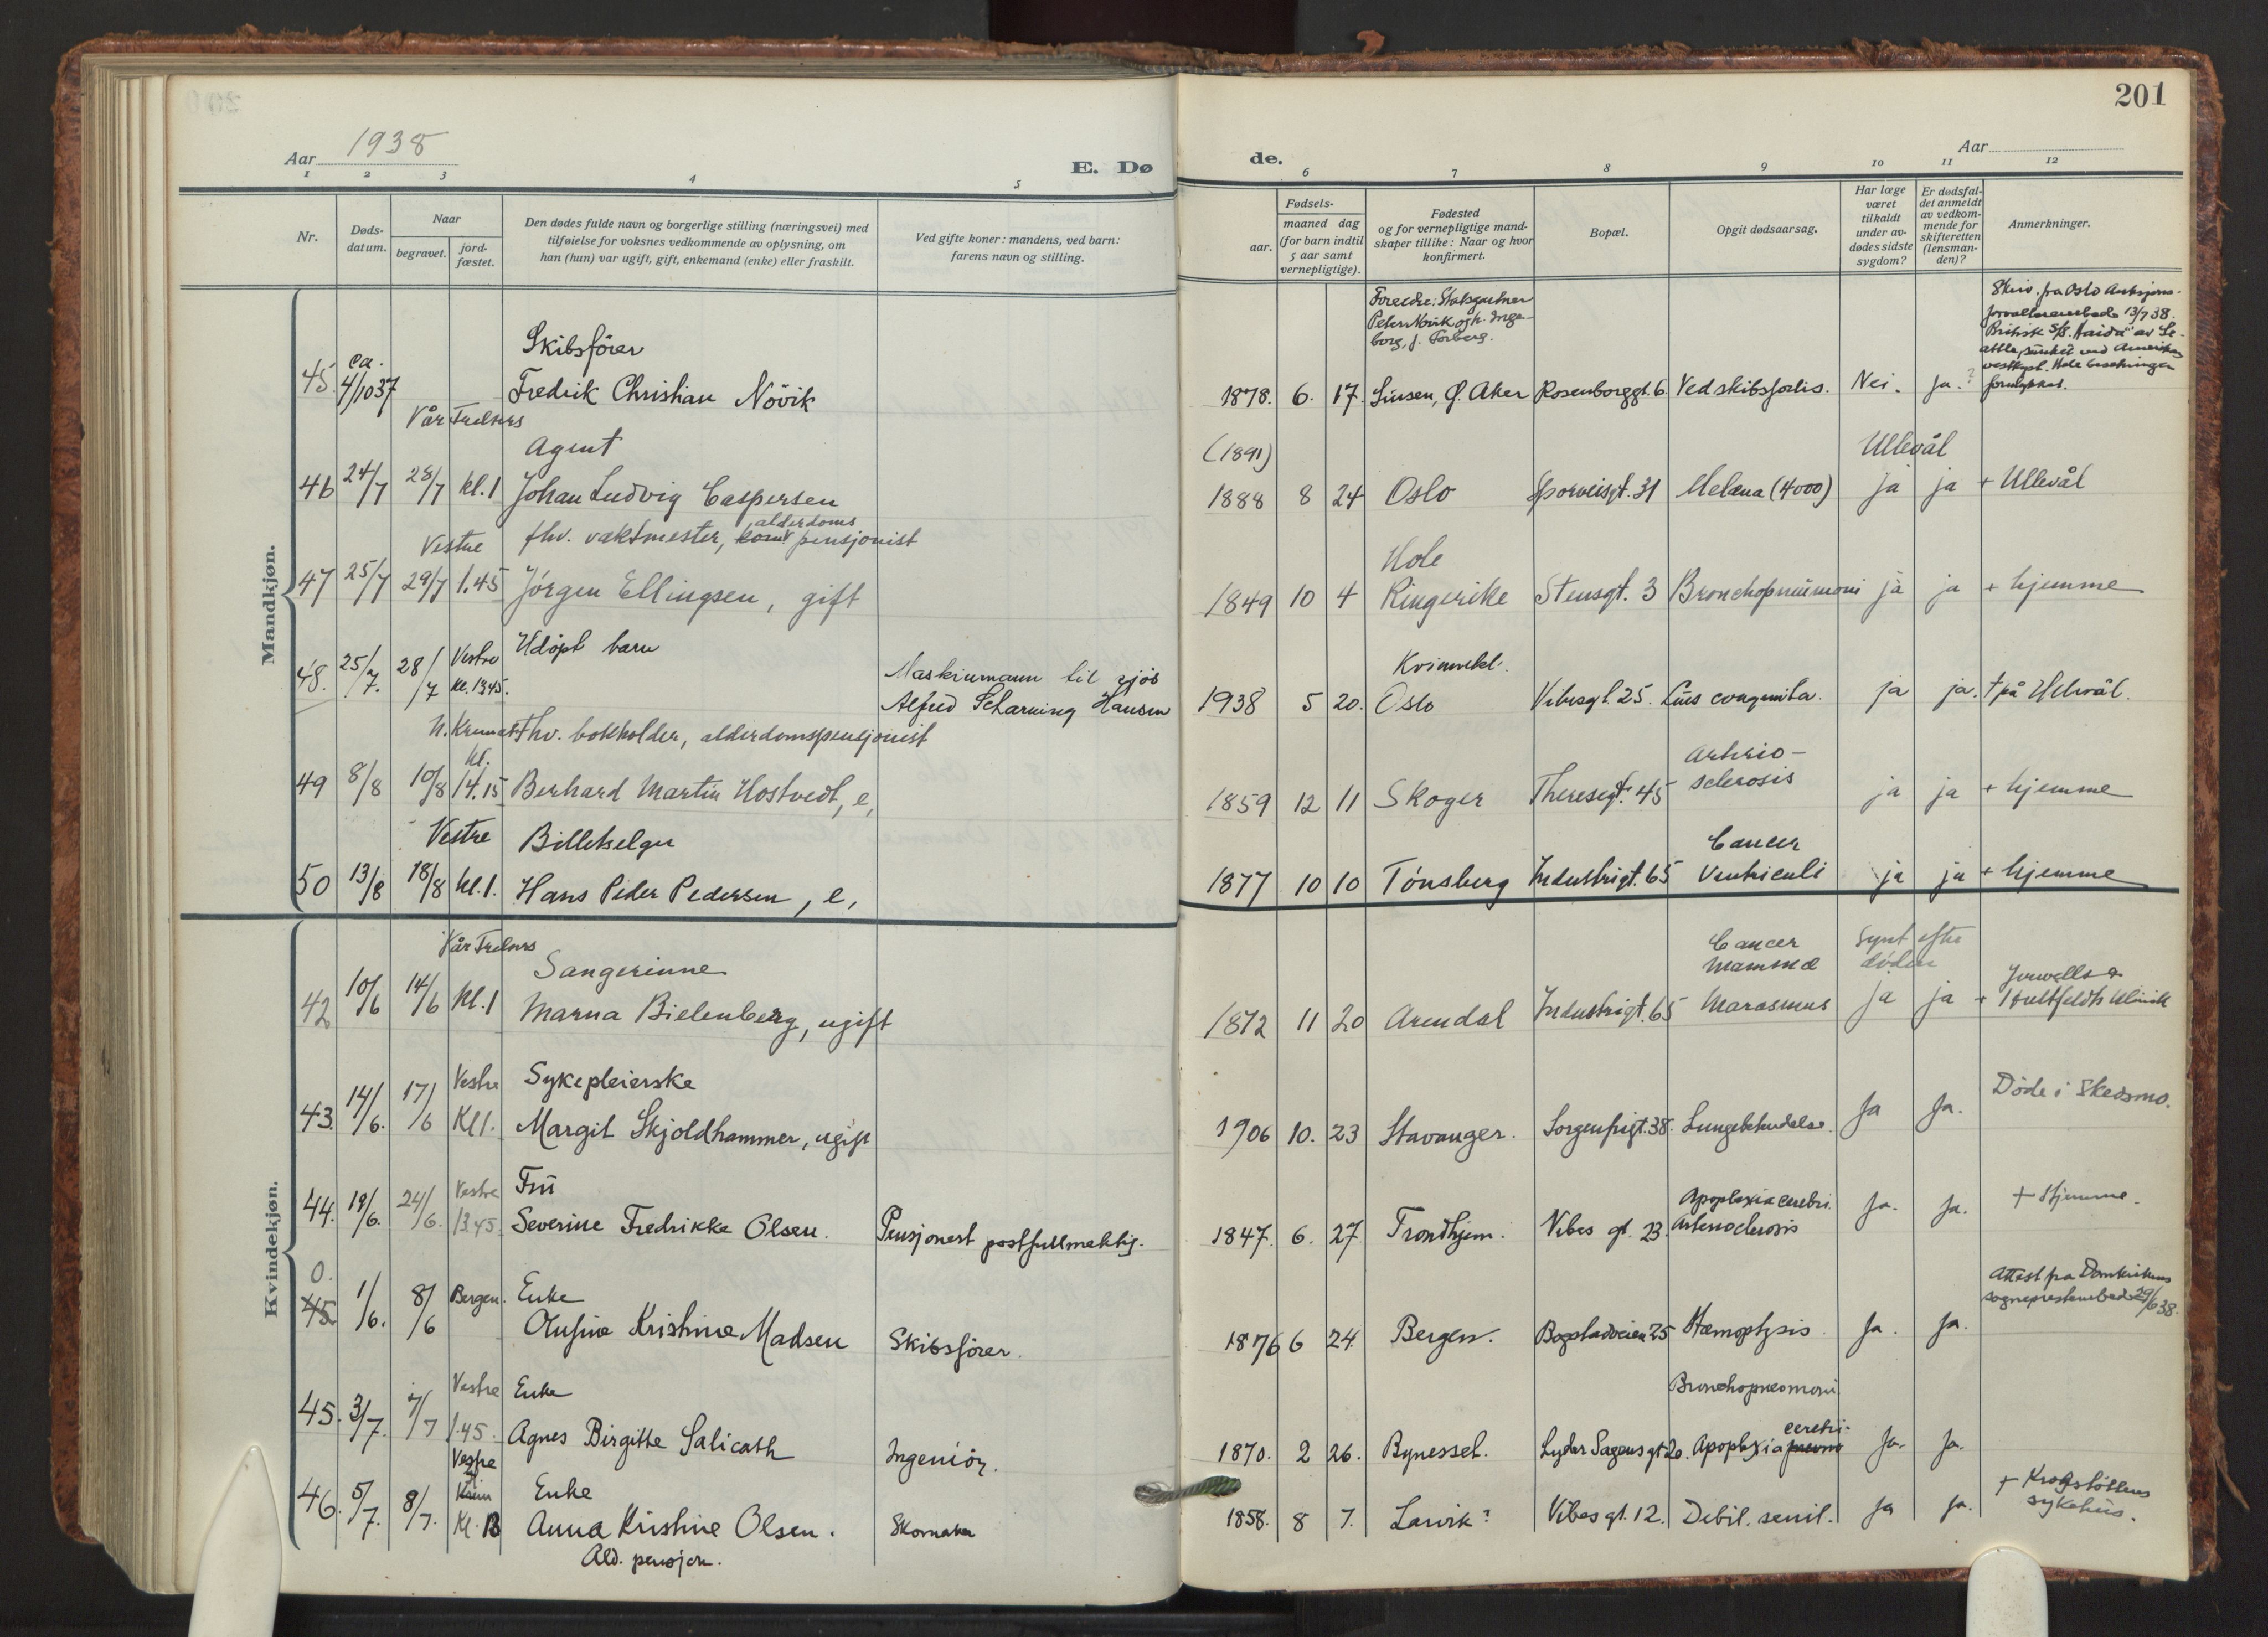 201
Aar 1938
E. Dø
de.
Aar
1 2 3 4 5 6 7 8 9 10 11 12
Nr.
Døds-
datum.
Naar
begravet.
jord-
fæstet.
Den dødes fulde navn og borgerlige stilling (næringsvei) med
tilføielse for voksnes vedkommende av oplysning, om
han (hun) var ugift, gift, enkemand (enke) eller fraskilt.
Ved gifte koner: mandens, ved barn:
farens navn og stilling.
Fødsels-
aar.
maaned dag
(for barn indtil
5 aar samt
vernepligtige).
Fødested
og for vernepligtige mand-
skaper tillike: Naar og hvor
konfirmert.
Bopæl.
Opgit dødsaarsag.
Har læge
været
tilkaldt
under av-
dødes sidste
sygdom?
Er dødsfal-
det anmeldt
av vedkom-
mende for
skifteretten
(lensman-
den)?
Anmerkninger.
Mandkjøn.
Foreldre: Statsgartner
Peter Növik og h. Inge-
borg, f. Torberg.
Skriv. fra Oslo
13/7 38.
Britisk S/S. "Haida" av Se-
attle sunket ved Amerikas
vestkyst. Hele besetningen
forulykket.
Skibsförer
45. ca. 4/10 37 Fredrik Christian Növik 1878. 6. 17. Sinsen, Ø. Aker Rosenborggt. 6 Ved skibsforlis. Nei. Ja.?
Vår Frelsers
Agent (1891) Ullevål
46 24/7 28/7 kl. 1 Johan Ludvig Caspersen 1888 8 24 Oslo Sporveisgt. 31 Melæna (4000) ja ja + Ullevål
Vestre fhv. vaktmester, alderdoms pensjonist Hole
47 25/7 29/7 1.45 Jörgen Ellingsen, gift 1849 10 4 Ringerike Stensgt. 3 Bronchopneumoni ja ja + hjemme
Udöpt barn Kvinnekl.
48. 25/7. 28/7 Vestre kl. 13.45. Maskinmann til sjös
Alfred Scharning Hansen 1938 5 20. Oslo Vibesgt. 25. Lues congenita. ja ja. † på Ullevål.
N. Kremat. Fhv. bokholder, alderdomspensjonist Arterio-
49 8/8 10/8 kl. 14.15 Berhard Martin Hostvedt, e, 1859 12 11 Skoger Theresegt. 45 sclerosis ja ja + hjemme
Vestre Billetselger Cancer
50 13/8 18/8 kl. 1. Hans Peder Pedersen, e, 1877 10 10 Tönsberg Industrigt. 65 Ventriculi ja ja + hjemme
Kvindekjøn.
Vår Frelsers Sangerinne Cancer mammæ Synt efter döden
42 10/6 14/6 kl. 1 Marna Bielenberg, ugift 1872 11 20 Arendal Industrigt. 65 Marasmus ja ja + Hultfeldts klinik
Vestre Sykepleierske Döde i Skedsmo.
43. 14/6. 17/6 Kl 1. Margit Skjoldhammer, ugift 1906 10. 23 Stavanger. Sorgenfrigt. 38. Lungebetendelse. Ja Ja.
Vestre Frü Apoplexia cerebri. + Hjemme.
44. 19/6. 24/6. 13.45 Severine Fredrikke Olsen. Pensjonert postfullmektig. 1847. 6. 27 Trondhjem. Vibes gt. 23. Arteriosclerosis Ja. Ja.
0. Attest fra Domkirkens
sogneprestembed 29/6 38.
45. 1/6. 8/6 Bergen. Enke
Olufine Kristine Madsen Skibsförer. 1876 6 24. Bergen. Bogstadveien 25 Hæmoptysis Ja. Ja.
Vestre Enke Bronchopneomoni
45. 3/7. 7/7 1.45. Agnes Birgitte Salicath Ingeniör. 1870. 2 26. Bynesset. Lyder Sagens gt 20. Apoplexia cerebri. Ja. Ja.
Vestre Krem Enke + Krogstöttens
sykehus.
46. 5/7. 8/7. Kl. 13 Anna Kristine Olsen. Skomaker 1858. 8 7. Larvik? Vibes gt. 12. Debil. senil. Ja Ja.
Ald. pensjon.